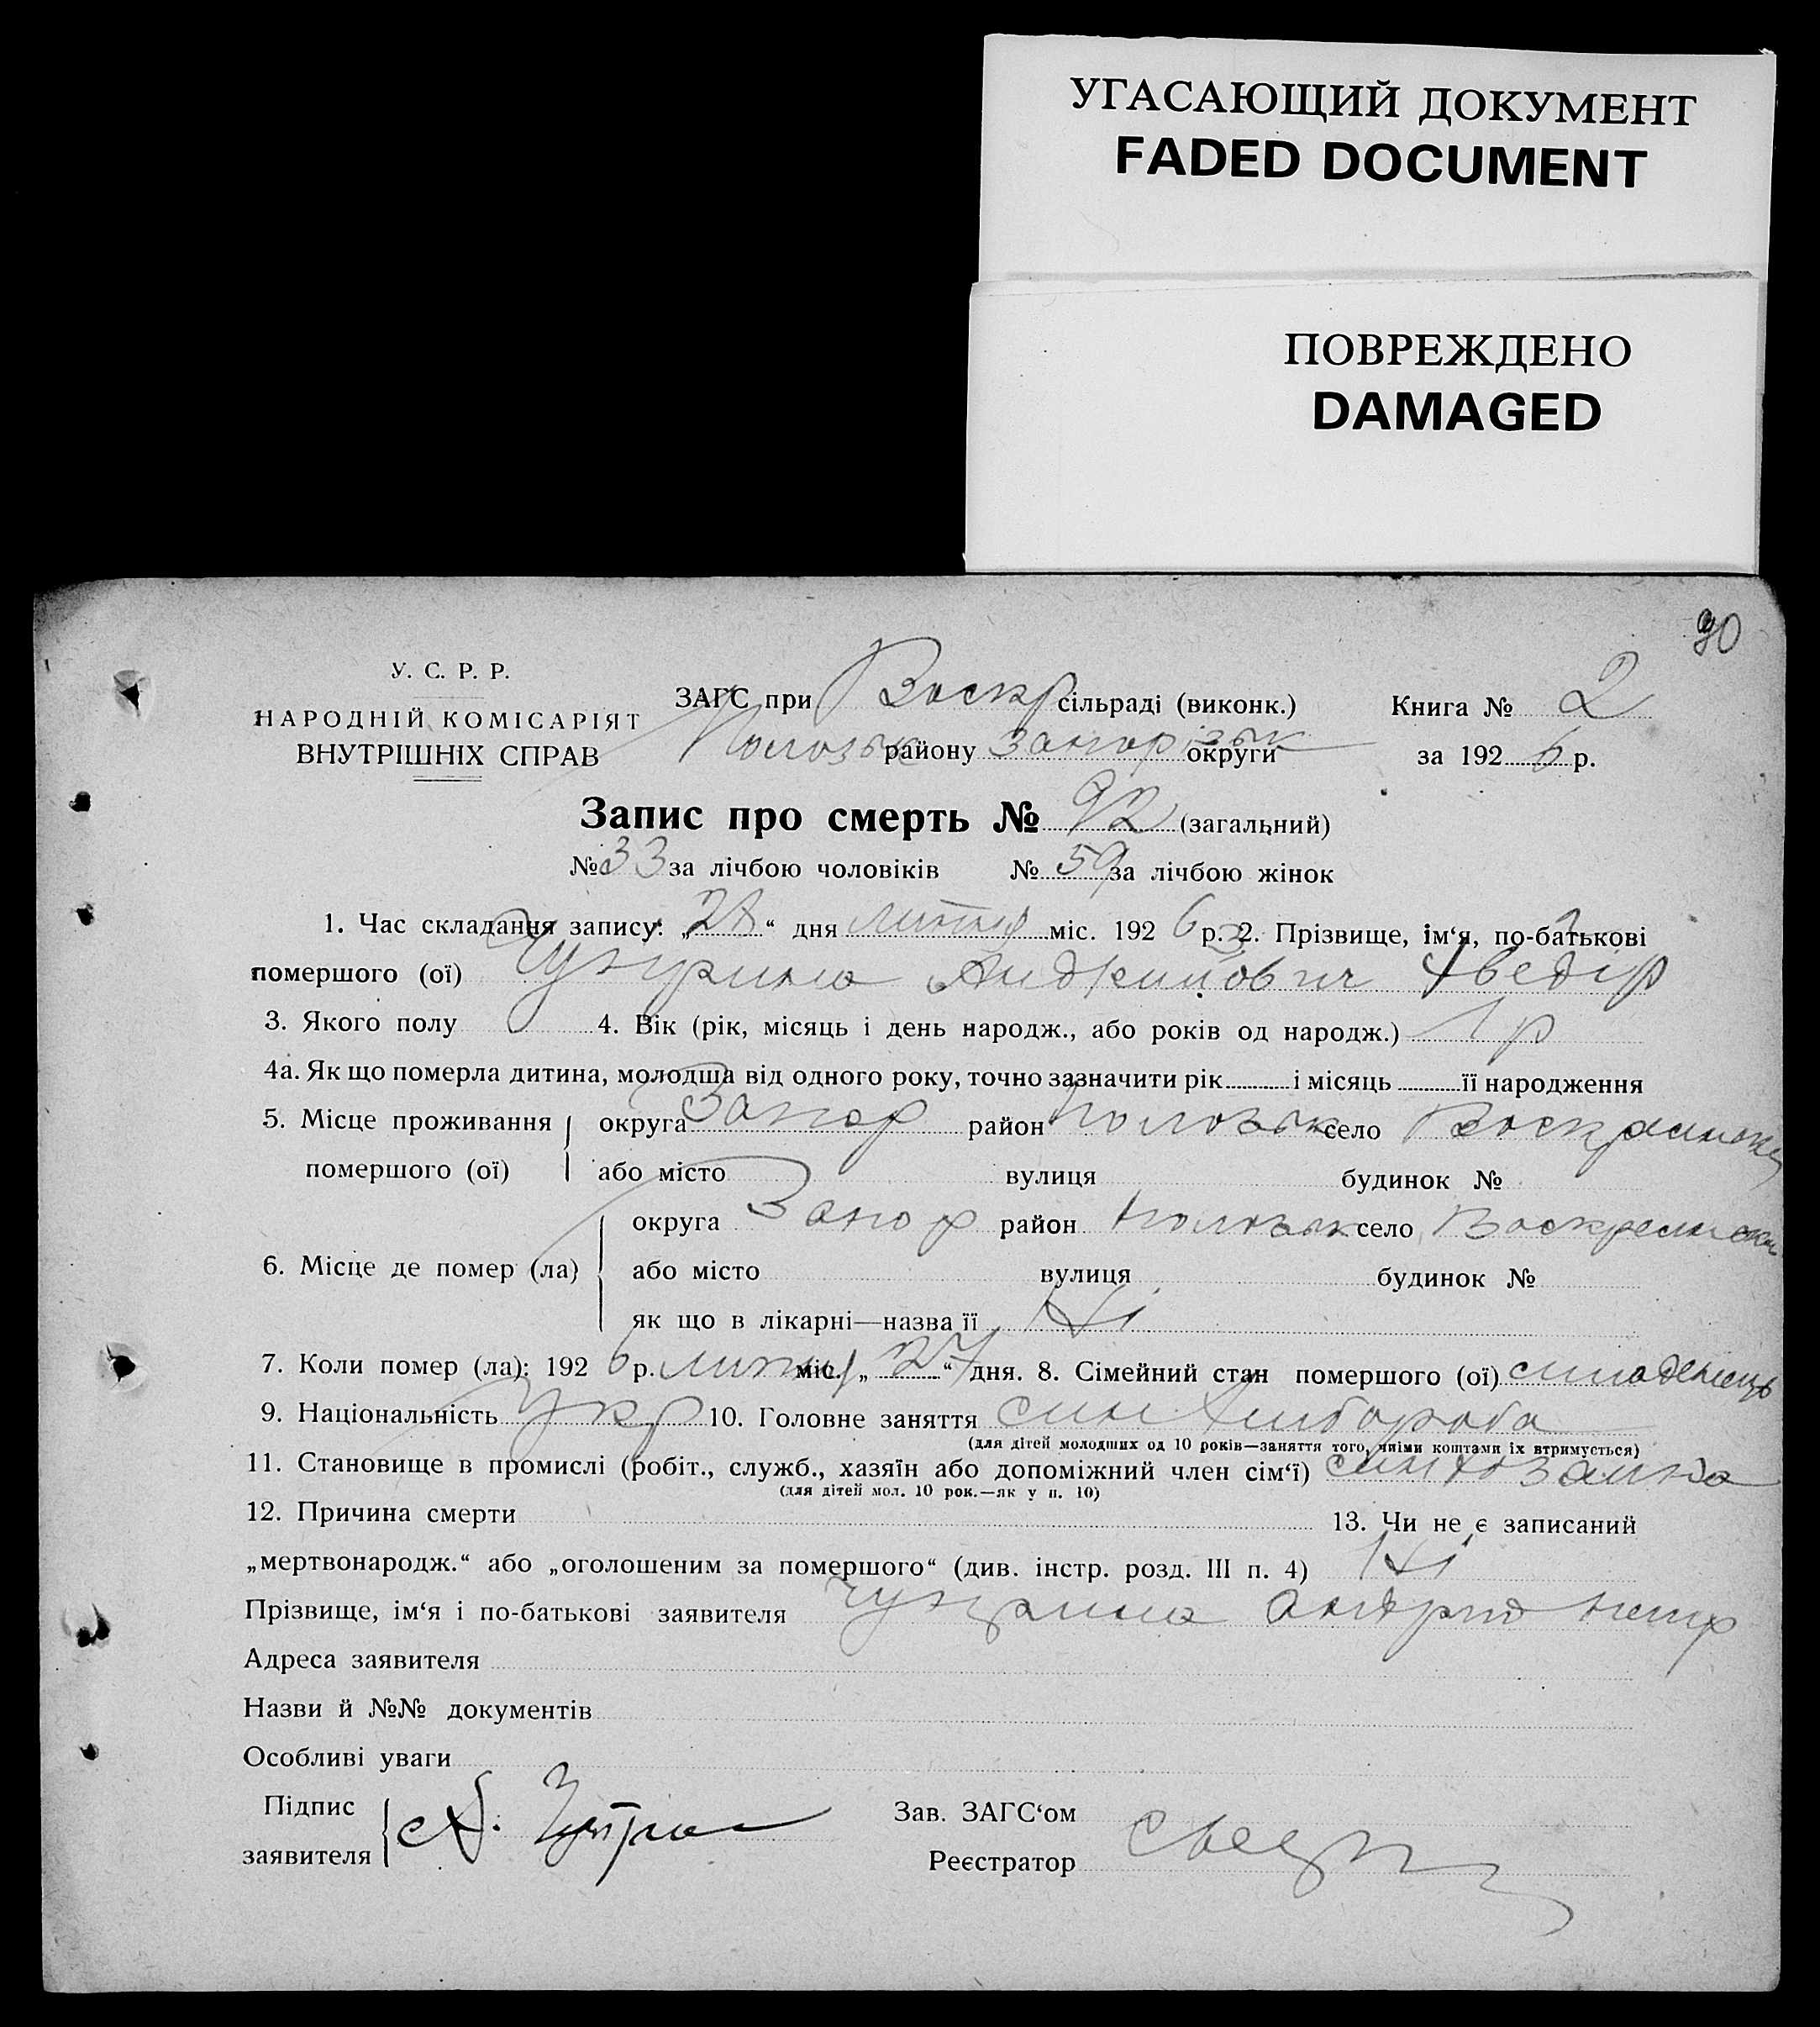 УГАСАЮЩИЙ ДОКУМЕНТ
FADED DOCUMENT
ПОВРЕЖДЕНО
DAMAGED
У. С. Р. Р.
НАРОДНІЙ КОМІСАРІЯТ
ВНУТРІШНІХ СПРАВ
ЗАГС при Воскр сільраді (виконк.)
району Запорізьк округи
Книга № 2
за 192 6 р.
Запис про смерть № 92 (загальний)
№ 33 за лічбою чоловіків № 59 за лічбою жінок
1. Час складання запису: „28“ дня лютня міс. 192 6 р. 2. Прізвище, ім‘я, по-батькові
помершого (ої) Хведір
3. Якого полу 4. Вік (рік, місяць і день народж., або років од народж.) 1 р
4а. Як що померла дитина, молодша від одного року, точно зазначити рік і місяць її народження
5. Місце проживання помершого (ої) округа Запор район село
або місто вулиця будинок №
6. Місце де помер (ла) округа Запор район село
або місто вулиця будинок №
як що в лікарні—назва її Ні
7. Коли помер (ла): 192 6 р. міс. „27“ дня. 8. Сімейний стан помершого (ої)
9. Національність Укр 10. Головне заняття син Хлібороба
(для дітей молодших од 10 років—заняття того, чиїми коштами їх втримується)
11. Становище в промислі (робіт., служб., хазяїн або допоміжний член сім‘ї) син хозаина
(для дітей мол. 10 рок.—як у п. 10)
12. Причина смерти 13. Чи не є записаний
„мертвонародж.“ або „оголошеним за помершого“ (див. інстр. розд. III п. 4) Ні
Прізвище, ім‘я і по-батькові заявителя
Адреса заявителя
Назви й №№ документів
Особливі уваги
Підпис
заявителя
Зав. ЗАГС‘ом
Реєстратор